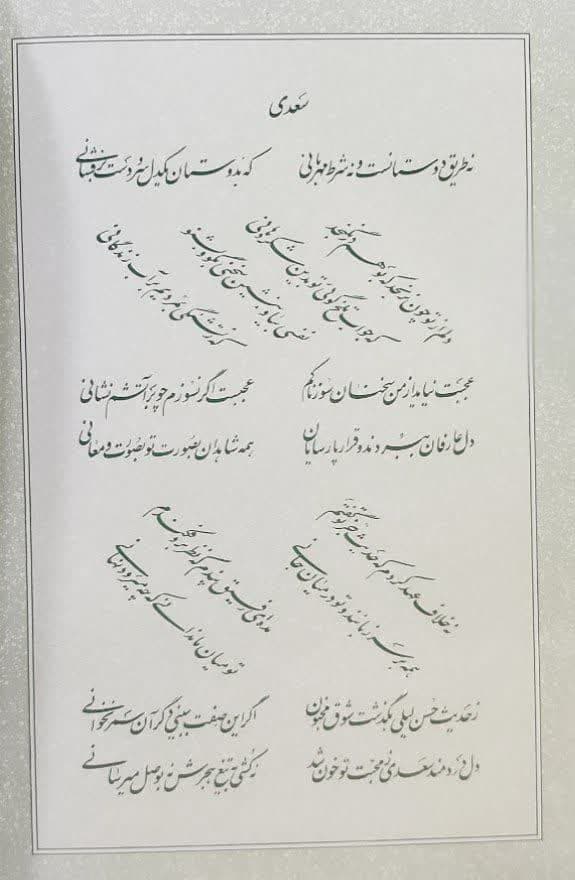 سعدی
نه طریق دوستانست و نه شرط مهربانی که بدوستان یکدل سر و دست برفشانی
دلم از تو چون برنجد که بوهم درنگنجد
که جواب تلخ گوئی تو بدین شکردهانی
نفسی بیا و بنشین سخنی بگو و بشنو
که ز تشنگی بمردم بر آب زندگانی
عجبت نیاید از من سخنان سوزناکم عجبست اگر نسوزم چو بر آتشم نشانی
دل عارفان ببردند و قرار پارسایان همه شاهدان بصورت تو بصورت و معانی
نه خلاف عهد کردم که حدیث جز تو گفتم
همه بر سر زبانند و تو در میان جانی
مده ای رفیق پندم که نظر برو فکندم
تو میان ما ندانی که چه میرود نهانی
ز حدیث حسن لیلی بگذشت شوق مجنون اگر این صفت ببینی دگر آن سمر نخوانی
دل دردمند سعدی ز محبت تو خون شد نکشی به تیغ هجرش نه بوصل میرسانی